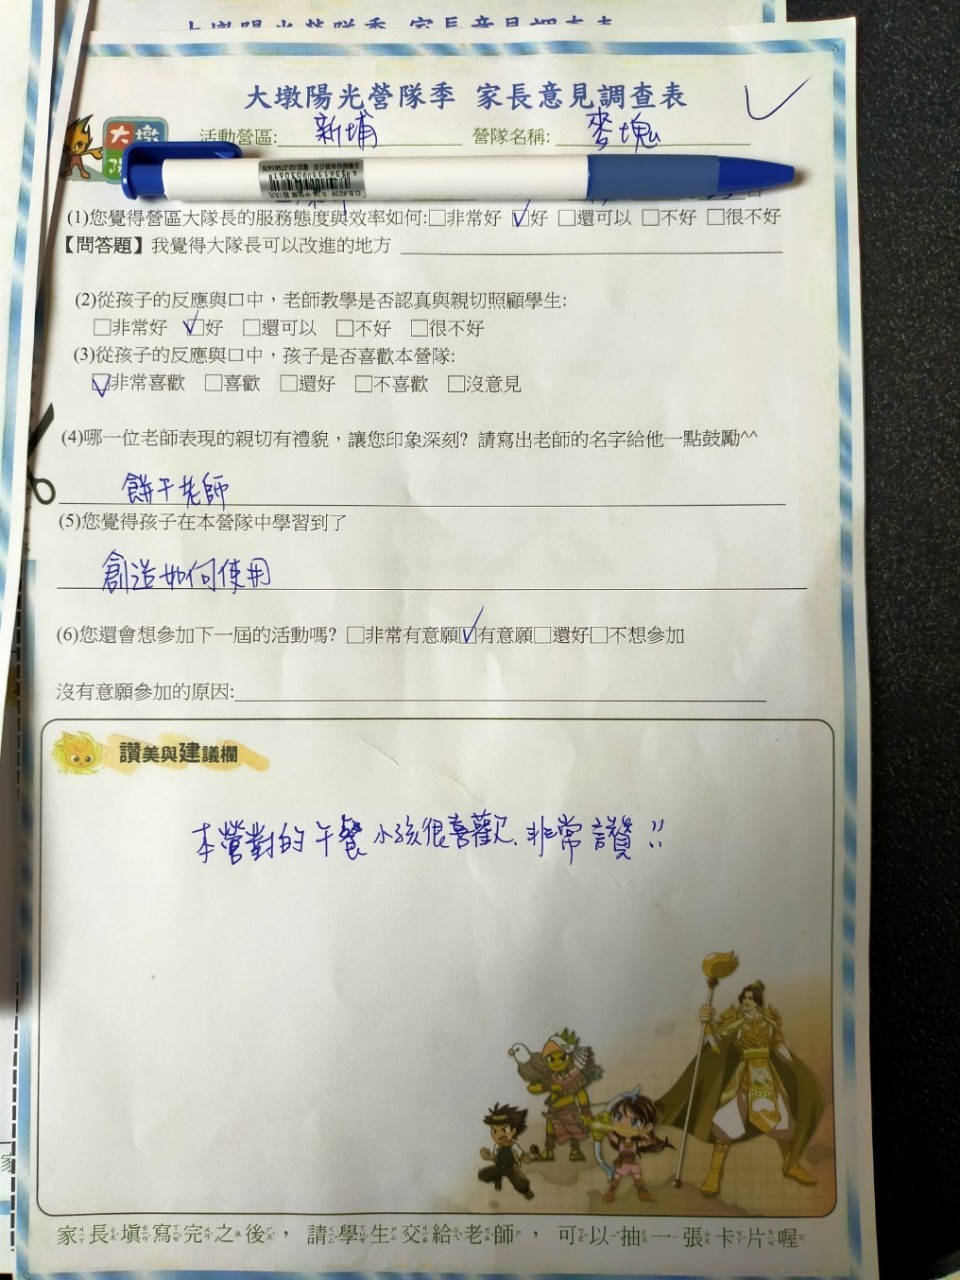 大墩陽光營隊季 家長意見調查表
大墩陽光營隊季 家長意見調查表
大墩
活動營區: 新埔 營隊名稱: 麥塊
(1)您覺得營區大隊長的服務態度與效率如何:□非常好 ☑好 □還可以 □不好 □很不好
【問答題】我覺得大隊長可以改進的地方
(2)從孩子的反應與口中，老師教學是否認真與親切照顧學生:
□非常好 ☑好 □還可以 □不好 □很不好
(3)從孩子的反應與口中，孩子是否喜歡本營隊:
☑非常喜歡 □喜歡 □還好 □不喜歡 □沒意見
(4)哪一位老師表現的親切有禮貌，讓您印象深刻? 請寫出老師的名字給他一點鼓勵^^
餅干老師
(5)您覺得孩子在本營隊中學習到了
創造如何使用
(6)您還會想參加下一屆的活動嗎? □非常有意願☑有意願□還好□不想參加
沒有意願參加的原因:
讚美與建議欄
本營對的午餐小孩很喜歡.非常讚!!
家長填寫完之後，請學生交給老師，可以抽一張卡片喔